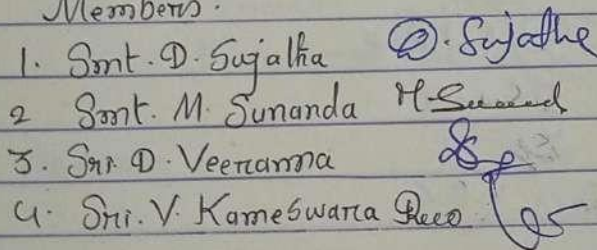 Members.
1. Smt. D. Sujatha D. Sujatha
2 Smt. M. Sunanda M
3. Sri. D. Veeranna
4. Sri. V. Kameswara Rao